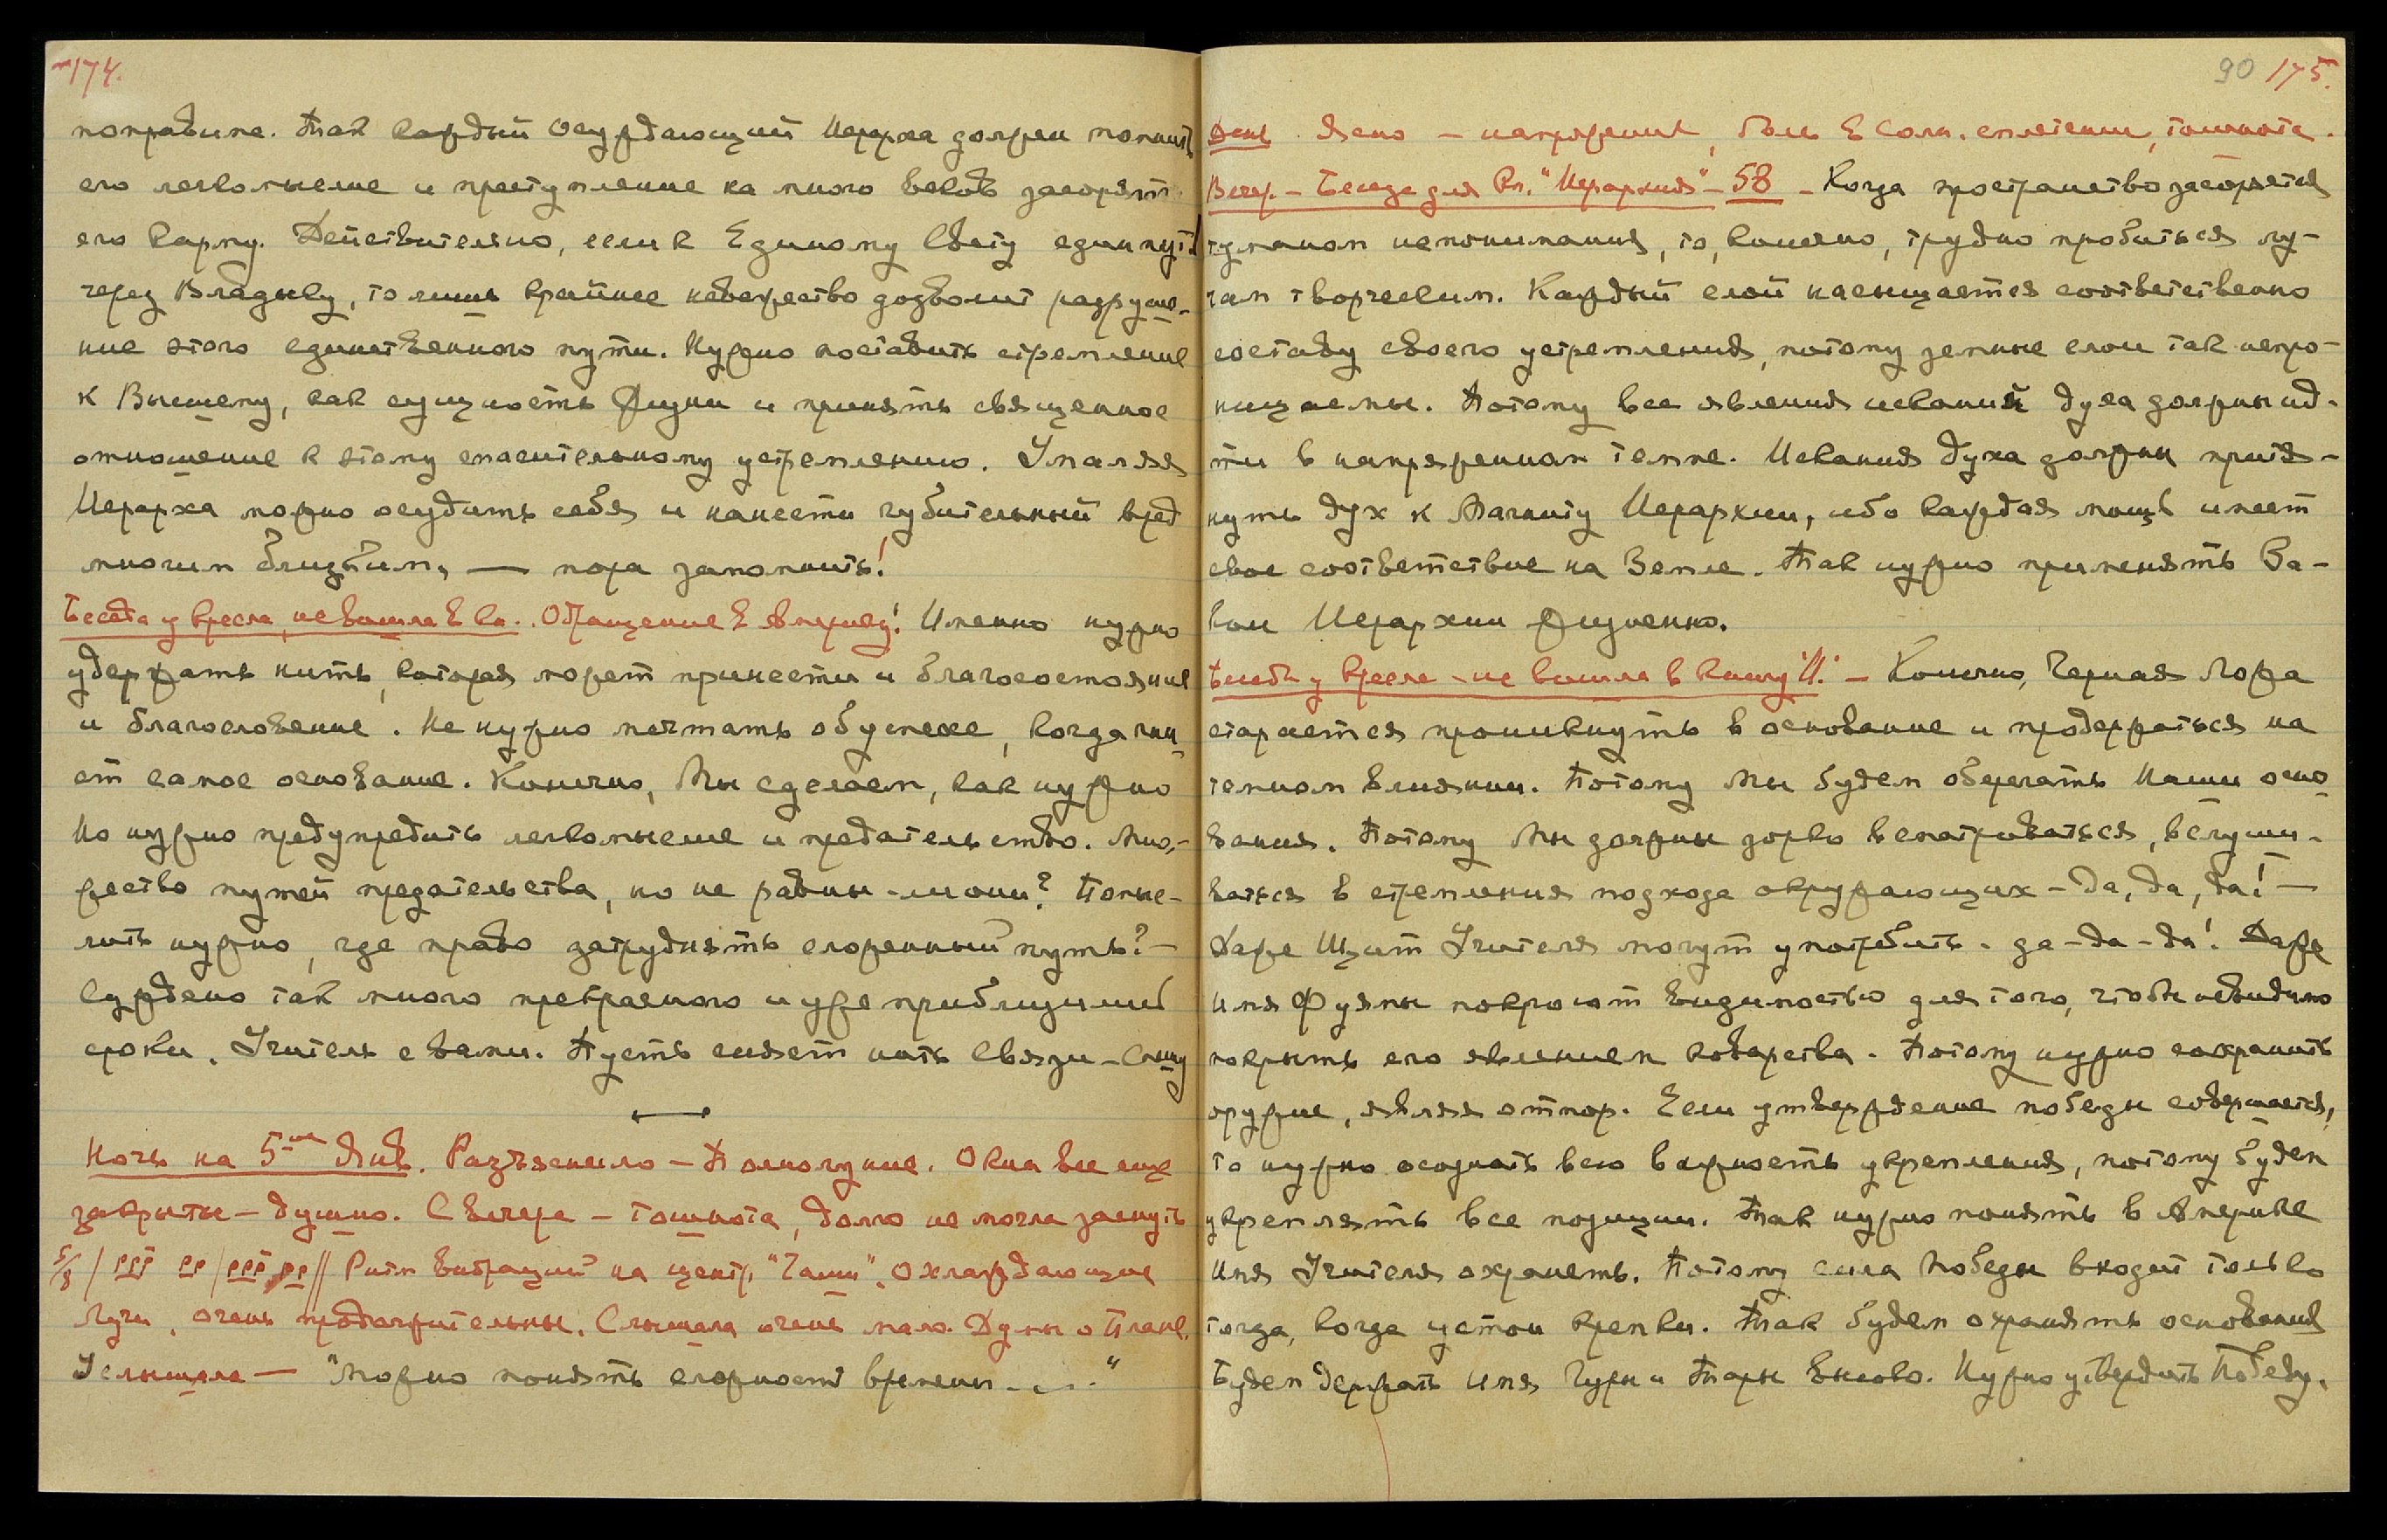 174.
поправима. Так каждый осуждающий Иерарха должен помнить
его легкомыслие и преступление на много веков засоряет
его карму. Действительно, если к Единому Свету един путь
через Владыку, то лишь крайнее невежество дозволит разруше-
ние этого единственного пути. Нужно поставить стремление
к Высшему, как сущность жизни и принять священное
отношение к этому спасительному устремлению. Умаляя
Иерарха можно осудить себя и нанести губительный вред
многим близким, — пора запомнить!
Беседа у кресла, не вошла в кн. Обращение в Америку! Именно нужно
удержать нить, которая может принести и благосостояние
и благословение. Не нужно мечтать об успехе, когда гни-
ет самое основание. Конечно, Мы сделаем, как нужно
Но нужно предупредить легкомыслие и предательство. Мно-
жество путей предательства, но не равны-ли они? Помыс-
лить нужно, где право затруднять сложенный путь? —
Суждено так много прекрасного и уже приблизились
сроки. Учитель с вами. Пусть сияет нить Связи - Спешу
Ночь на 5-ое Янв. Разъяснило - Полнолуние. Окна все еще
закрыты - душно. С вечера - тошнота, долго не могла заснуть
5/8 Ритм вибраций на центр. "Чаши". Охлаждающие
Лучи, очень продолжительны. Слышала очень мало. Думы о Плане.
Услышала — "можно понять сложность времени ..."
90 175.
День. Ясно - напряжение, боли в солн. сплетении, тошнота.
Вечер. - Беседа для кн. "Иерархия" - 58 - Когда пространство засоряется
туманом непонимания, то, конечно, трудно пробиться лу-
чам творческим. Каждый слой насыщается соответственно
составу своего устремления, потому земные слои так непро-
ницаемы. Потому все явления исканий духа должны ид-
ти в напряженном темпе. Искания духа должны притя-
нуть дух к Магниту Иерархии, ибо каждая мощь имеет
свое соответствие на Земле. Так нужно применять За-
кон Иерархии жизненно.
Беседа у кресла - не вошла в книгу "И." - Конечно, Черная Ложа
старается проникнуть в основание и продержаться на
темном влиянии. Потому Мы будем оберегать Наши осно-
вания. Потому Мы должны зорко всматриваться, вслуши-
ваться в стремления подхода окружающих - Да, да, да! —
Даже Щит Учителя могут употребить - да-да-да! Даже
имя Фуямы покроют видимостью для того, чтобы невидимо
покрыть его явлением коварства. Потому нужно сохранить
оружие, являя отпор. Если утверждение победы совершается,
то нужно осознать всю важность укрепления, потому будем
укреплять все позиции. Так нужно понять в Америке
имя Учителя охранять. Потому сила Победы входит только
тогда, когда устои крепки. Так будем охранять основания
Будем держать имя Гуру и Тары высоко. Нужно утвердить Победу.